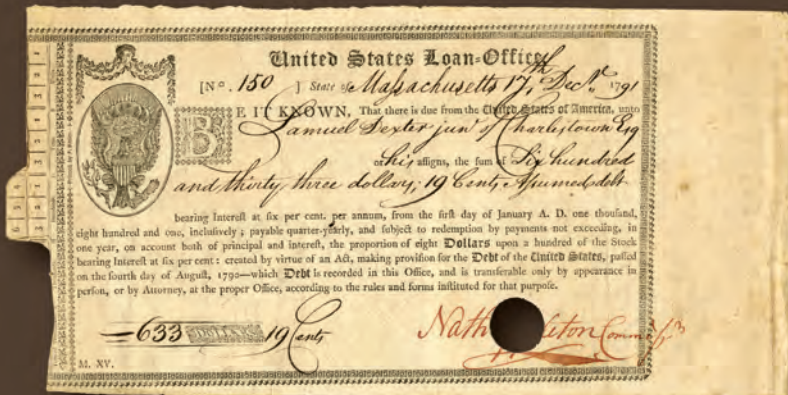 United States Loan-Office.
[No. 150 ] State of Massachusetts 17th Decr. 1791
BE IT KNOWN, That there is due from the United States of America, unto
Samuel Dexter junr of Charlestown Esq
or his assigns, the sum of Six hundred
and thirty three dollars, 19 Cents, Assumed debt
bearing Interest at six per cent. per annum, from the first day of January A. D. one thousand,
eight hundred and one, inclusively ; payable quarter-yearly, and subject to redemption by payments not exceeding, in
one year, on account both of principal and interest, the proportion of eight Dollars upon a hundred of the Stock
bearing Interest at six per cent : created by virtue of an Act, making provision for the Debt of the United States, passed
on the fourth day of August, 1790—which Debt is recorded in this Office, and is transferable only by appearance in
person, or by Attorney, at the proper Office, according to the rules and forms instituted for that purpose.
633 DOLLARS 19 Cents
Nath
M. XV.